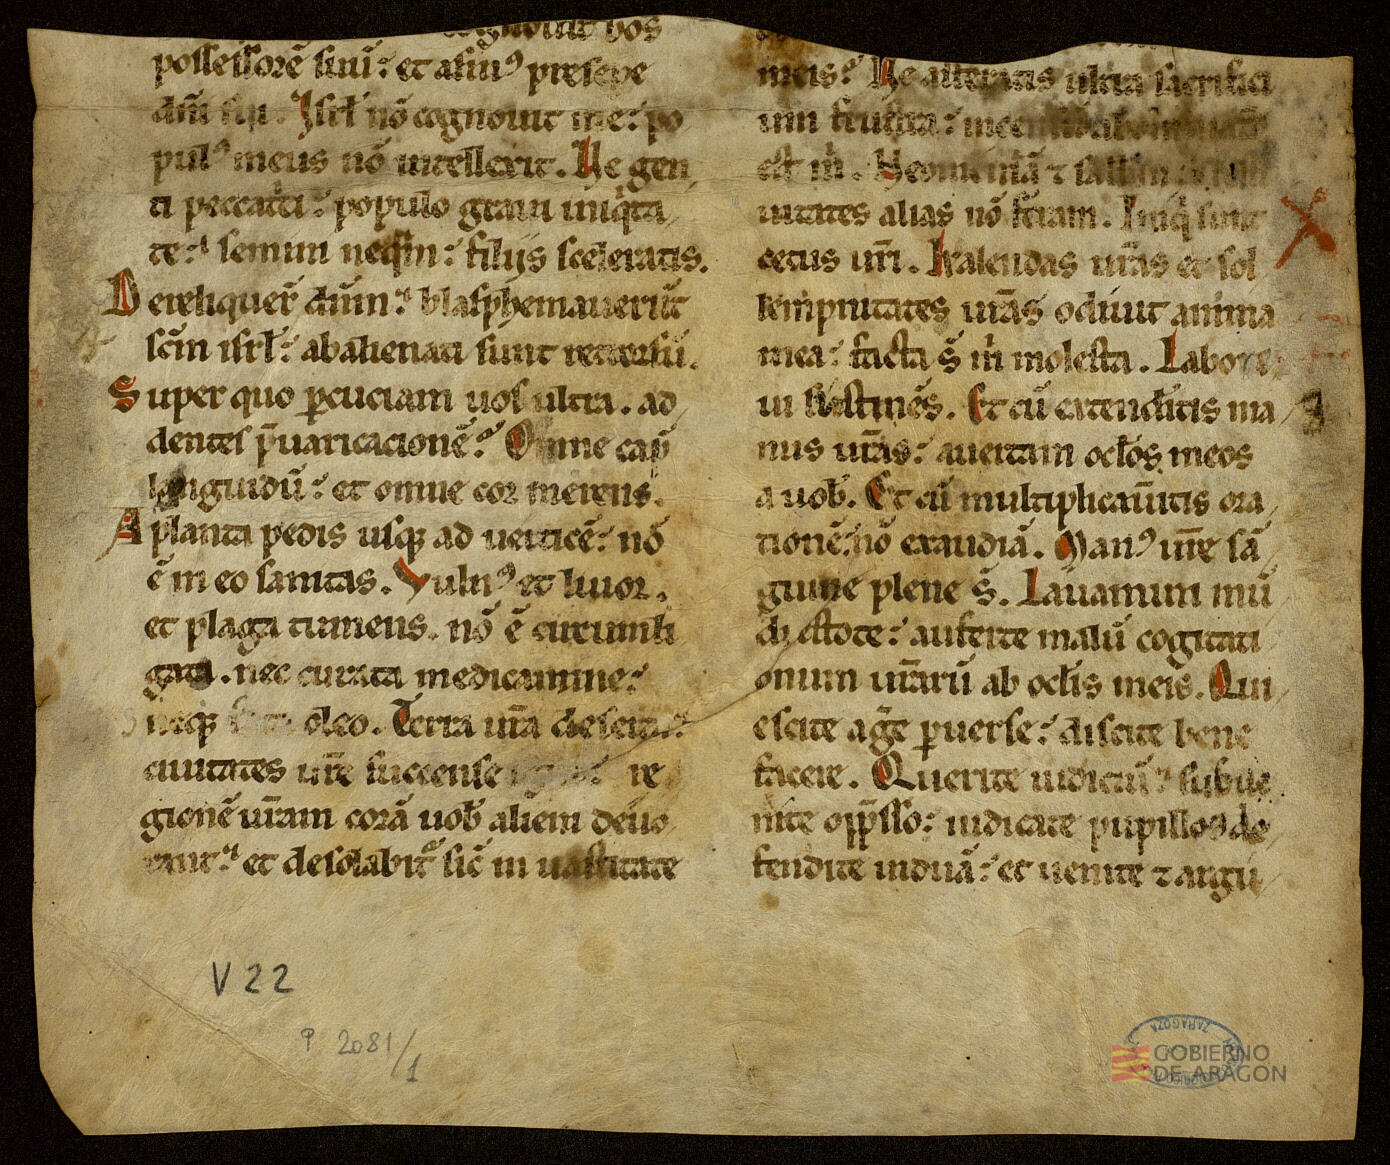 cognouit bos
possessorē suū: et asinꝰ presepe
dn̄i sui. Isrl̄ nō cognouit me: po
pulꝰ meus nō intellexit. Ue gen
ti peccat'ci: populo graui iniq'ta
te: semini neq̄m: filiis sceleratis.
Dereliquer̄ dn̄m: blasphemauerūt
sc̄m isrl̄: abalienati sunt retrorsū.
Super quo ꝑcuciam uos ultra. ad
dentes p̄uaricacionē: Omne cap̄
languidū: et omne cor merens.
A planta pedis usq̨ ad uerticē: nō
ē in eo sanitas. Vulnꝰ et liuor.
et plaga tumens. nō ē circumli
gata. nec curata medicamine:
neq̨ oleo. Terra ur̄a deserta:
ciuitates ur̄e succense re
gionē ur̄am corā uob̄ alieni deuo
rant: et desolabit᷑ sic̄ in uastitate
meis: Ne afferatis ultra sacrifici
um frustra:
est m̄. Neomeniā ⁊
iuitates alias nō fer̄am. Iniq̄ sunt
cetus ur̄i. Kalendas ur̄as et sol
lempnitates ur̄as odiuit anima
mea: facta s̄ m̄ molesta. Labore
ui sustinēs. Et cū extenderitis ma
nus ur̄as: auertam ocl̄os meos
a uob̄. Et cū multiplicau̅itis ora
tionē: nō exaudiā. Manꝰ ur̄e sā
guine plene s̄. Lauamini mū
di estote: auferte malū cogitati
onum ur̄arū ab ocl̄is meis. Qui
escite ag̅e ꝑuerse: discite bene
facere. Querite iudiciū: subue
nite opp̄sso: iudicate pupillo: de
fendite uiduā: et uenite ⁊ argu
V 22
P 2081/1
ZARAGOZA
GOBIERNO
DE ARAGON